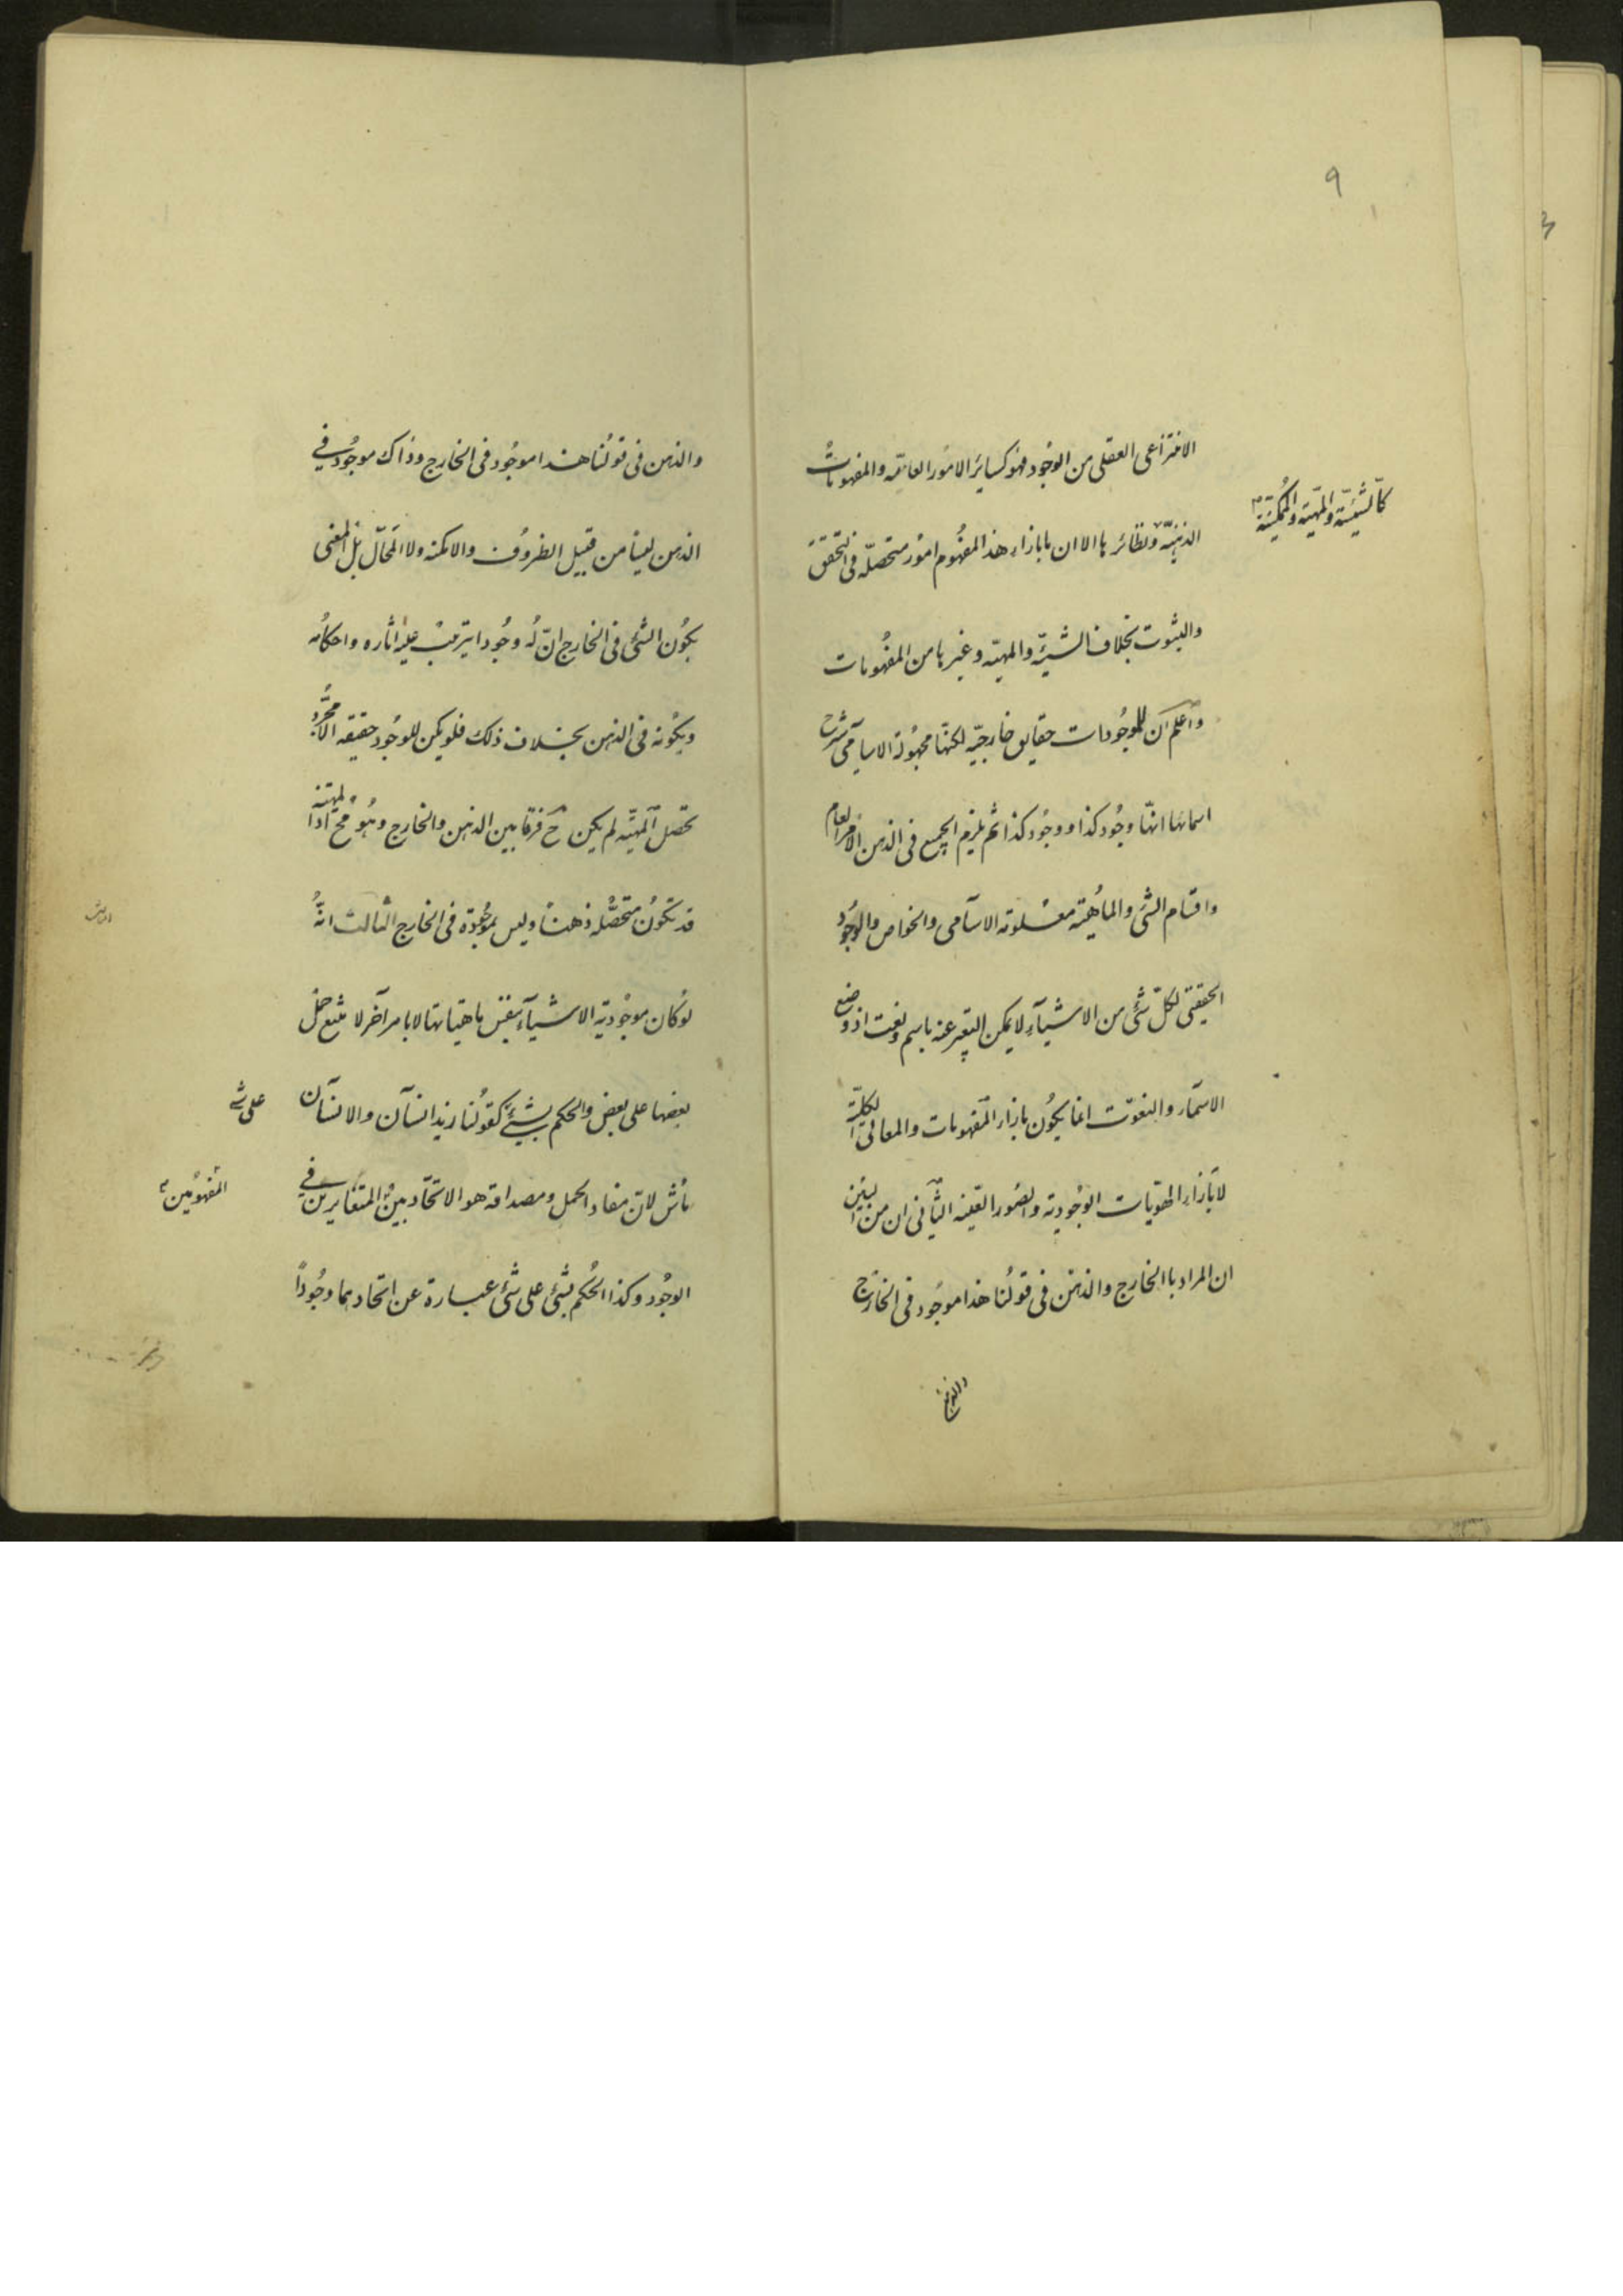 ٩
الانتزاعى العقلى من الوجُود فهو كسايَر الامُور العامّه والمفهوماتُ
كالشيئيّة والمهيّة والمُمكنيّة
الذهنيّه ونظائرها الا ان ما بازاء هذا المفهُوم امُور متحصّله فى التحقق
والثبوت بخلاف الشيئيّه والمهيّه وغيرها من المفهُومات
وَاعلم ان للوجُودات حقايق خارجيّه لكنّها مجهُولة الاسامى شرح
اسمائها انّها وجُود كذا ووجُود كذا ثم يلزم الجميع فى الذهن الامر العام
واقسام الشئ والماهُيّه معلُومة الاسآمى والخواص والوجُود
الحقيقى لكلّ شئ من الاشيآء لا يمكن التعبير عنه باسم ونعت اذ وضع
الاسمآء والنعوّت انما يكوُن بازاء المفهومات والمعانى الكليّة
لا بَازاء الهويّات الوجُوديّه والصُور العينيّه الثّانى ان من البيّن
ان المراد باالخارج والذهن فى قولُنا هذا موجُود فى الخارج
والذهن
والذهن فى قولُنا هذا موجُود فى الخارج وذاك موجُود فى
الذهن ليسا من قبيل الظروُف والامكنه ولا المَحالّ بل المعنى
بكوُن الشئ فى الخارج انّ لُه وجُودا يترتب عليه اثاره واحكامُه
وبكوُنه فى الذهن بخلاف ذلك فلو لم يكن للوجُود حقيقه الا مجرّد
تحصّل المهيّه لم يكن ح فرقا بين الذهن والخارج وهُو مح اذ المهيّة
قد تكونُ متحصّله ذهنًا وليس بموجُودة فى الخارج الثالث انّه
لوكان موجُوديّة الاشيآء بنفس ماهياتها لا بامر آخر لامتنع حمل
بعضها على بعض والحكم بشيئ كقولُنا زيد انسآن والانسآن
على شئ
ماش لانّ مفاد الحمل ومصداقه هو الاتحّاد بين المتغايرين فى
المفهوُمين
الوجُود وكذا الحُكم بشئ على شئ عبارة عن اتحادهما وجُوداً